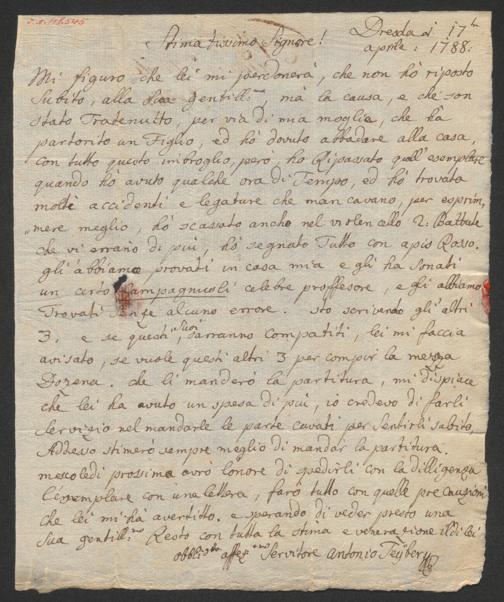 Dresda di 17ᵗᵉ
Stimatissimo Signore!
aprile: 1788:
Mi figuro che lei mi perdonerà, che non hò risposto
Subito, alla Sua gentill:ᵐᵃ, mà la causa, e che son
stato Tratenutto, per via di mia moglie, che hà
partorito un Figlio, ed hò dovuto abbadare alla casa,
con tutto questo imbroglio, però, hò Ripassato quell' esemplare
quando hò avuto qualche ora di Tempo, ed hò trovata
molti accidenti e legature che mancavano, per esprim,
„mere meglio, hò scassato ancho nel violencello 2: Battute
che vi eraño di piú, hò segnato Tutto con apis Rosso.
gli abbiamo provati in casa mia e gli ha Sonati
un certo Campagnicoli celebre proffesore, e gli abbiamo
Trovati senze alcuno errore. sto scrivendo gl' altri
3: e se questi suoi sarranno compatiti, lei mi faccia
avisato, se vuole questi altri 3 per compir la mezza
Dozena. che li manderò la partitura, mi dispiace
che lei hà avuto un spesa di piú, io credevo di farli
Servizio nel mandarle le parte cavati per Sentirli Subito,
Addesso stimerò sempre meglio di mandar la partitura.
mercoledì prossima avrò l'onore di spedirli con la dilligenza
l'essemplare con una lettera, farò tutto con quelle precauzioni
che lei mi hà avertitto. e sperando di veder presto una
Sua gentill:ᵐᵃ Resto con tutta la stima e venerazione il di lei
obbli:ᵐᵒ affez:ᵐᵒ Servitore Antonio Teÿber